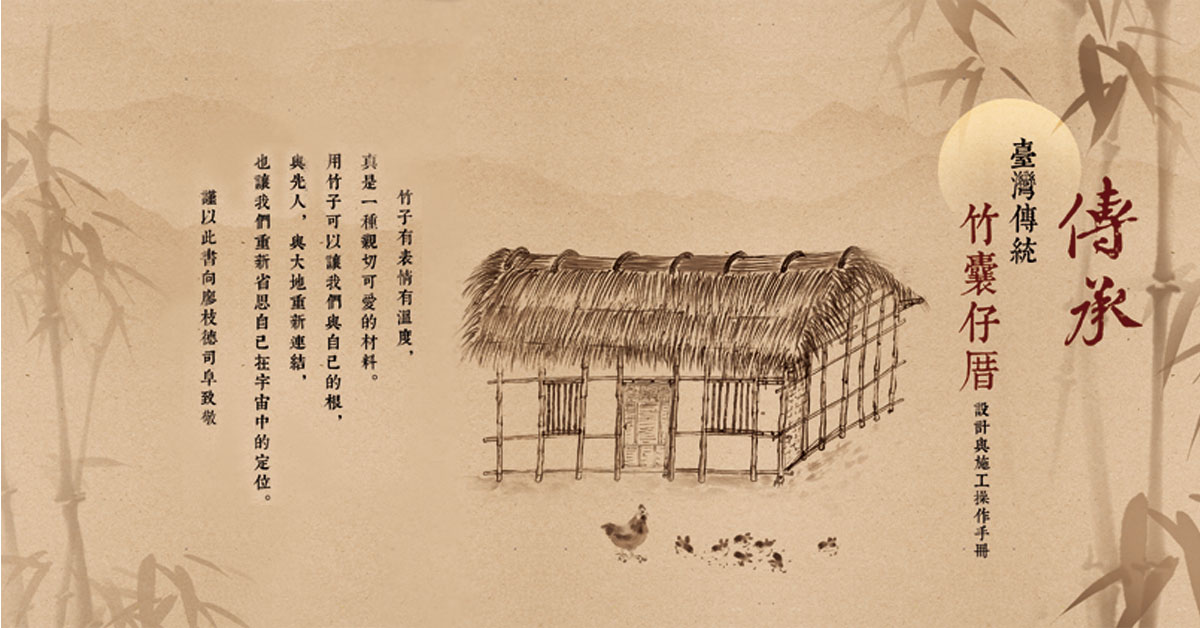 傳承
臺灣傳統
竹囊仔厝
設計與施工操作手冊
竹子有表情有溫度，
真是一種親切可愛的材料。
用竹子可以讓我們與自己的根，
與先人，與大地重新連結，
也讓我們重新省思自己在宇宙中的定位。
謹以此書向廖枝德司阜致敬